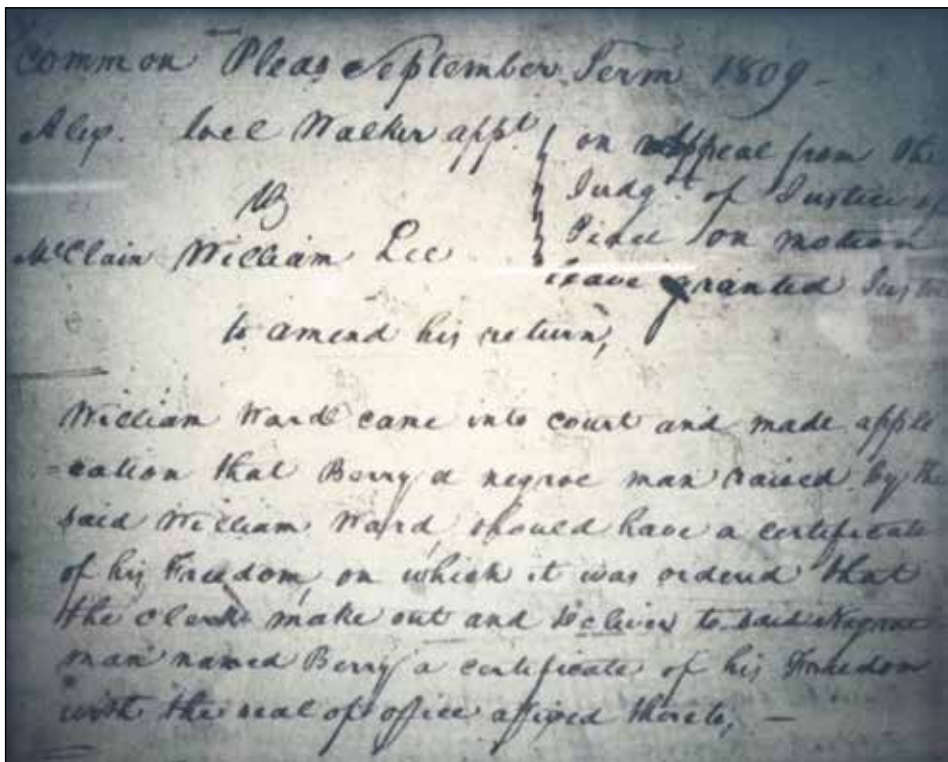 Common Pleas September Term 1809 -
Alex. Joel Walker appt. on Appeal from the
vs Judgt. of Justice of
McClain William Lee on motion
leave granted Justice
to amend his return,
William Ward came into court and made appli
-cation that Berry a negroe man raised by the
said William Ward, should have a certificate
of his Freedom, on which it was ordered that
the clerk make out and deliver to said Negroe
man named Berry a certificate of his Freedom
with the seal of office affixed thereto; -